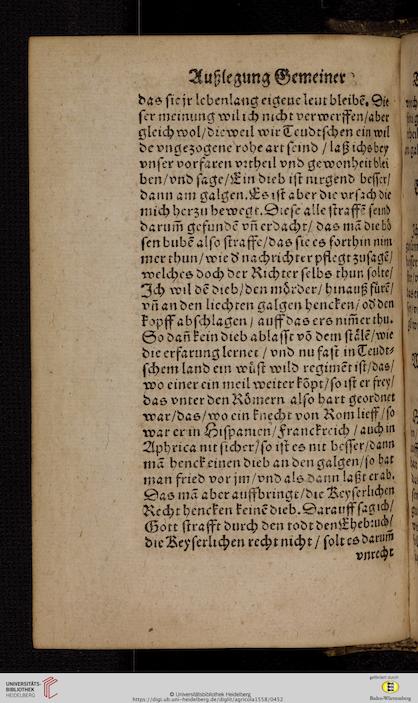 Außlegung Gemeiner
das sie jr lebenlang eigene leut bleibē. Die
ser meinung wil ich nicht verwerffen/aber
gleich wol/dieweil wir Teudtschen ein wil
de vngezogene rohe art seind / laß ichs bey
vnser vorfaren vrtheil vnd gewonheit blei
ben/vnd sage/Ein dieb ist nirgend besser/
dann am galgen. Es ist aber die vrsach die
mich herzu bewegt. Diese alle straffē seind
darum̄ gefundē vn̄ erdacht/ das mā die bö
sen bubē also straffe/das sie es forthin nim
mer thun/wie d̄ nachrichter pflegt zusagē/
welches doch der Richter selbs thun solte/
Ich wil dē dieb/den mörder/ hinauß fürē/
vn̄ an den liechten galgen hencken/ od̄ den
kopff abschlagen / auff das ers nim̄er thu.
So dan̄ kein dieb ablasst vō dem stelē/wie
die erfarung lernet / vnd nu fast in Teudt-
schem land ein wüst wild regimēt ist/das/
wo einer ein meil weiter kōpt/so ist er frey/
das vnter den Römern also hart geordnet
war/das/wo ein knecht von Rom lieff /so
war er in Hispanien/Franckreich / auch in
Aphrica nit sicher/so ist es nit besser/dann
mā henck einen dieb an den galgen/so hat
man fried vor jm/vnd als dann laßt er ab.
Das mā aber auffbringt/die Keyserlichen
Recht hencken keinē dieb. Darauff sag ich/
Gott strafft durch den todt den Ehebruch/
die Keyserlichen recht nicht / solt es darum̄
vnrecht
UNIVERSITÄTS-
BIBLIOTHEK
HEIDELBERG
© Universitätsbibliothek Heidelberg
https://digi.ub.uni-heidelberg.de/diglit/agricola1558/0452
gefördert durch
Baden-Württemberg